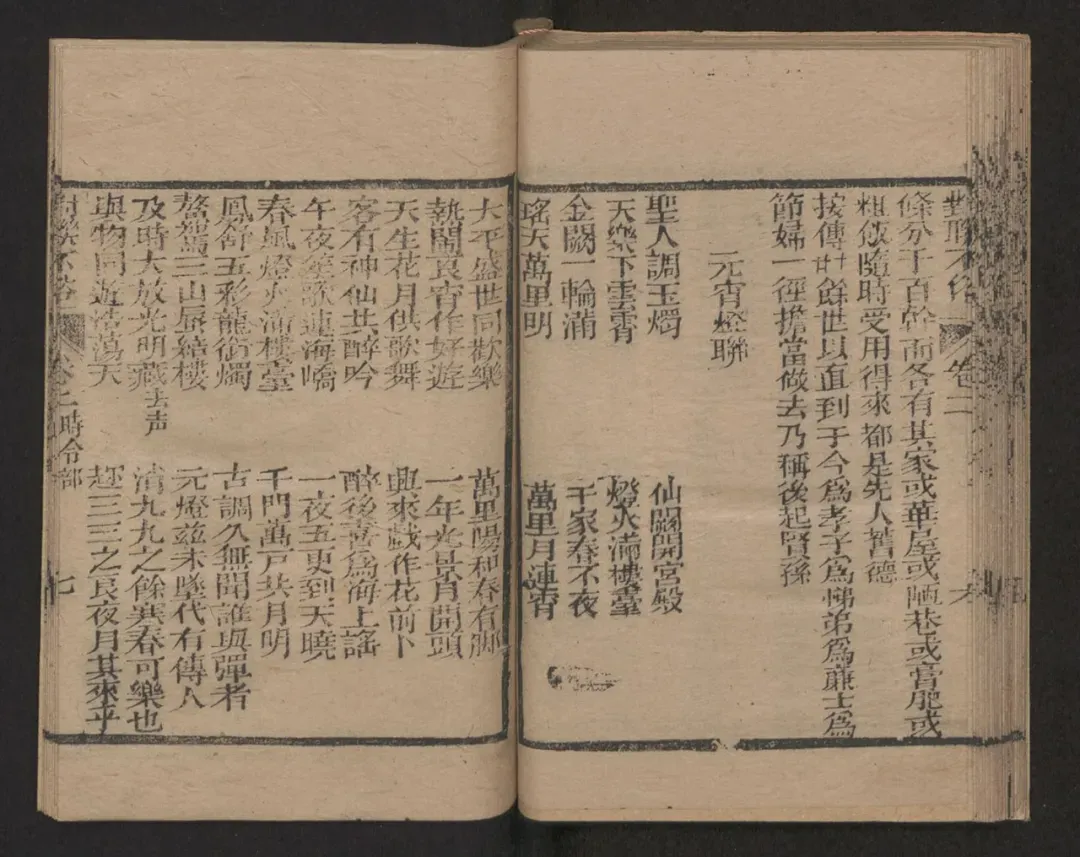 對聯不俗 卷二 六
條分千百幹而各有其家或華屋或陋巷或膏肥或
粗飯隨時受用得來都是先人舊德
按傳廿餘世以直到于今爲孝子爲悌弟爲廉士爲
節婦一徑擔當做去乃稱後起賢孫
元宵燈聯
聖人調玉燭 仙闕開宮殿
天樂下雲霄 燈火滿樓臺
金闕一輪滿 千家春不夜
瑤天萬里明 萬里月連宵
大平盛世同歡樂 萬里陽和春有脚
熱鬧良宵作好遊 一年光景月開頭
天生花月供歌舞 興來戲作花前卜
客有神仙共醉吟 醉後喜爲海上謠
午夜笙歌連海嶠 一夜五更到天曉
春風燈火滿樓臺 千門萬戸共月明
鳳舒五彩龍銜燭 古調久無聞誰與彈者
鰲駕三山蜃結樓 元燈茲未墜代有傳人
及時大放光明藏去声 消九九之餘寒春可樂也
與物同遊浩蕩天 趂三三之良夜月其來乎
對聯不俗 卷二時令部 七